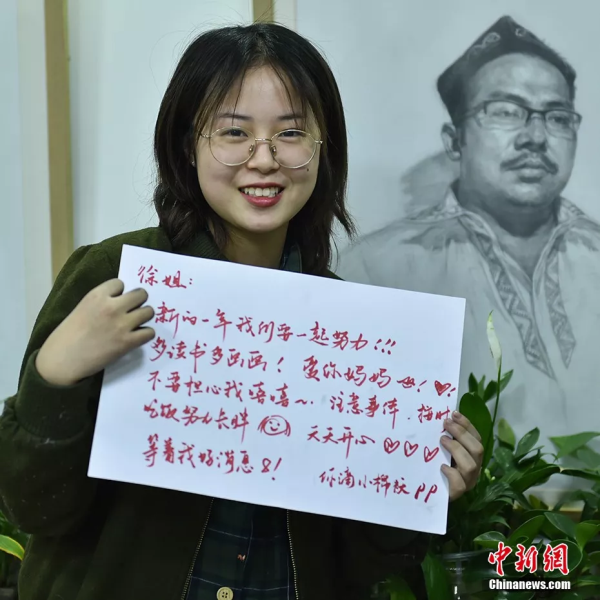 徐姐：
新的一年我们要一起努力！！！
多读书多画画！爱你妈妈 ！
不要担心我嘻嘻～. 注意身体. 按时
吃饭努力长胖 天天开心
等着我好消息 ！ 你滴小棉袄
中新網
Chinanews.com